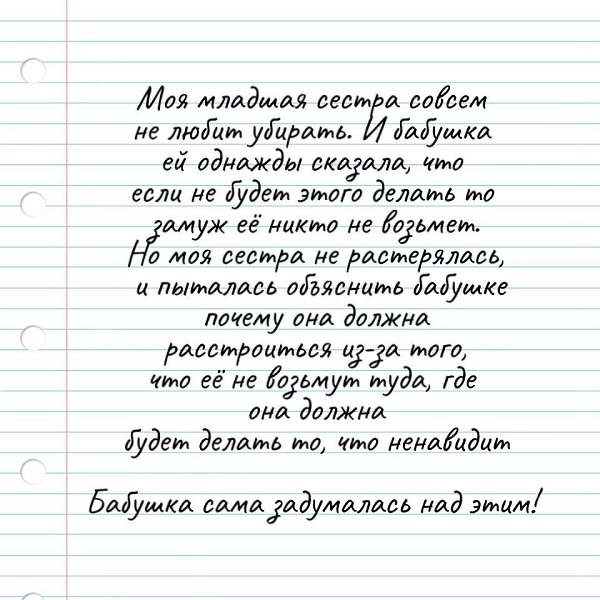 Моя младшая сестра совсем
не любит убирать. И бабушка
ей однажды сказала, что
если не будет этого делать то
замуж её никто не возьмет.
Но моя сестра не растерялась,
и пыталась объяснить бабушке
почему она должна
расстроиться из-за того,
что её не возьмут туда, где
она должна
будет делать то, что ненавидит
Бабушка сама задумалась над этим!